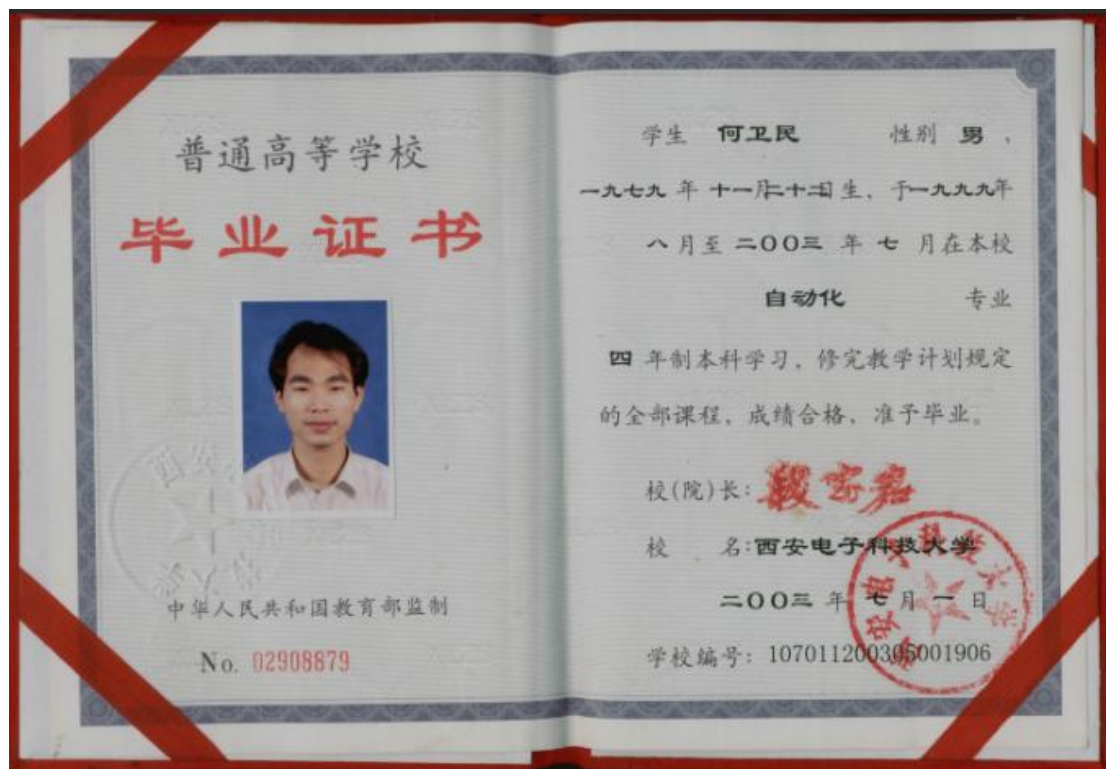 普通高等学校
毕业证书
中华人民共和国教育部监制
No. 02908879
学生 何卫民 性别 男,
一九七九 年 十一月二十二日生, 于一九九九年
八 月至 二〇〇三 年 七 月在本校
自动化 专业
四 年制本科学习, 修完教学计划规定
的全部课程, 成绩合格, 准予毕业。
校(院)长:
校 名:西安电子科技大学
二〇〇三 年 七 月 一 日
学校编号: 107011200305001906
西安电子科技大学